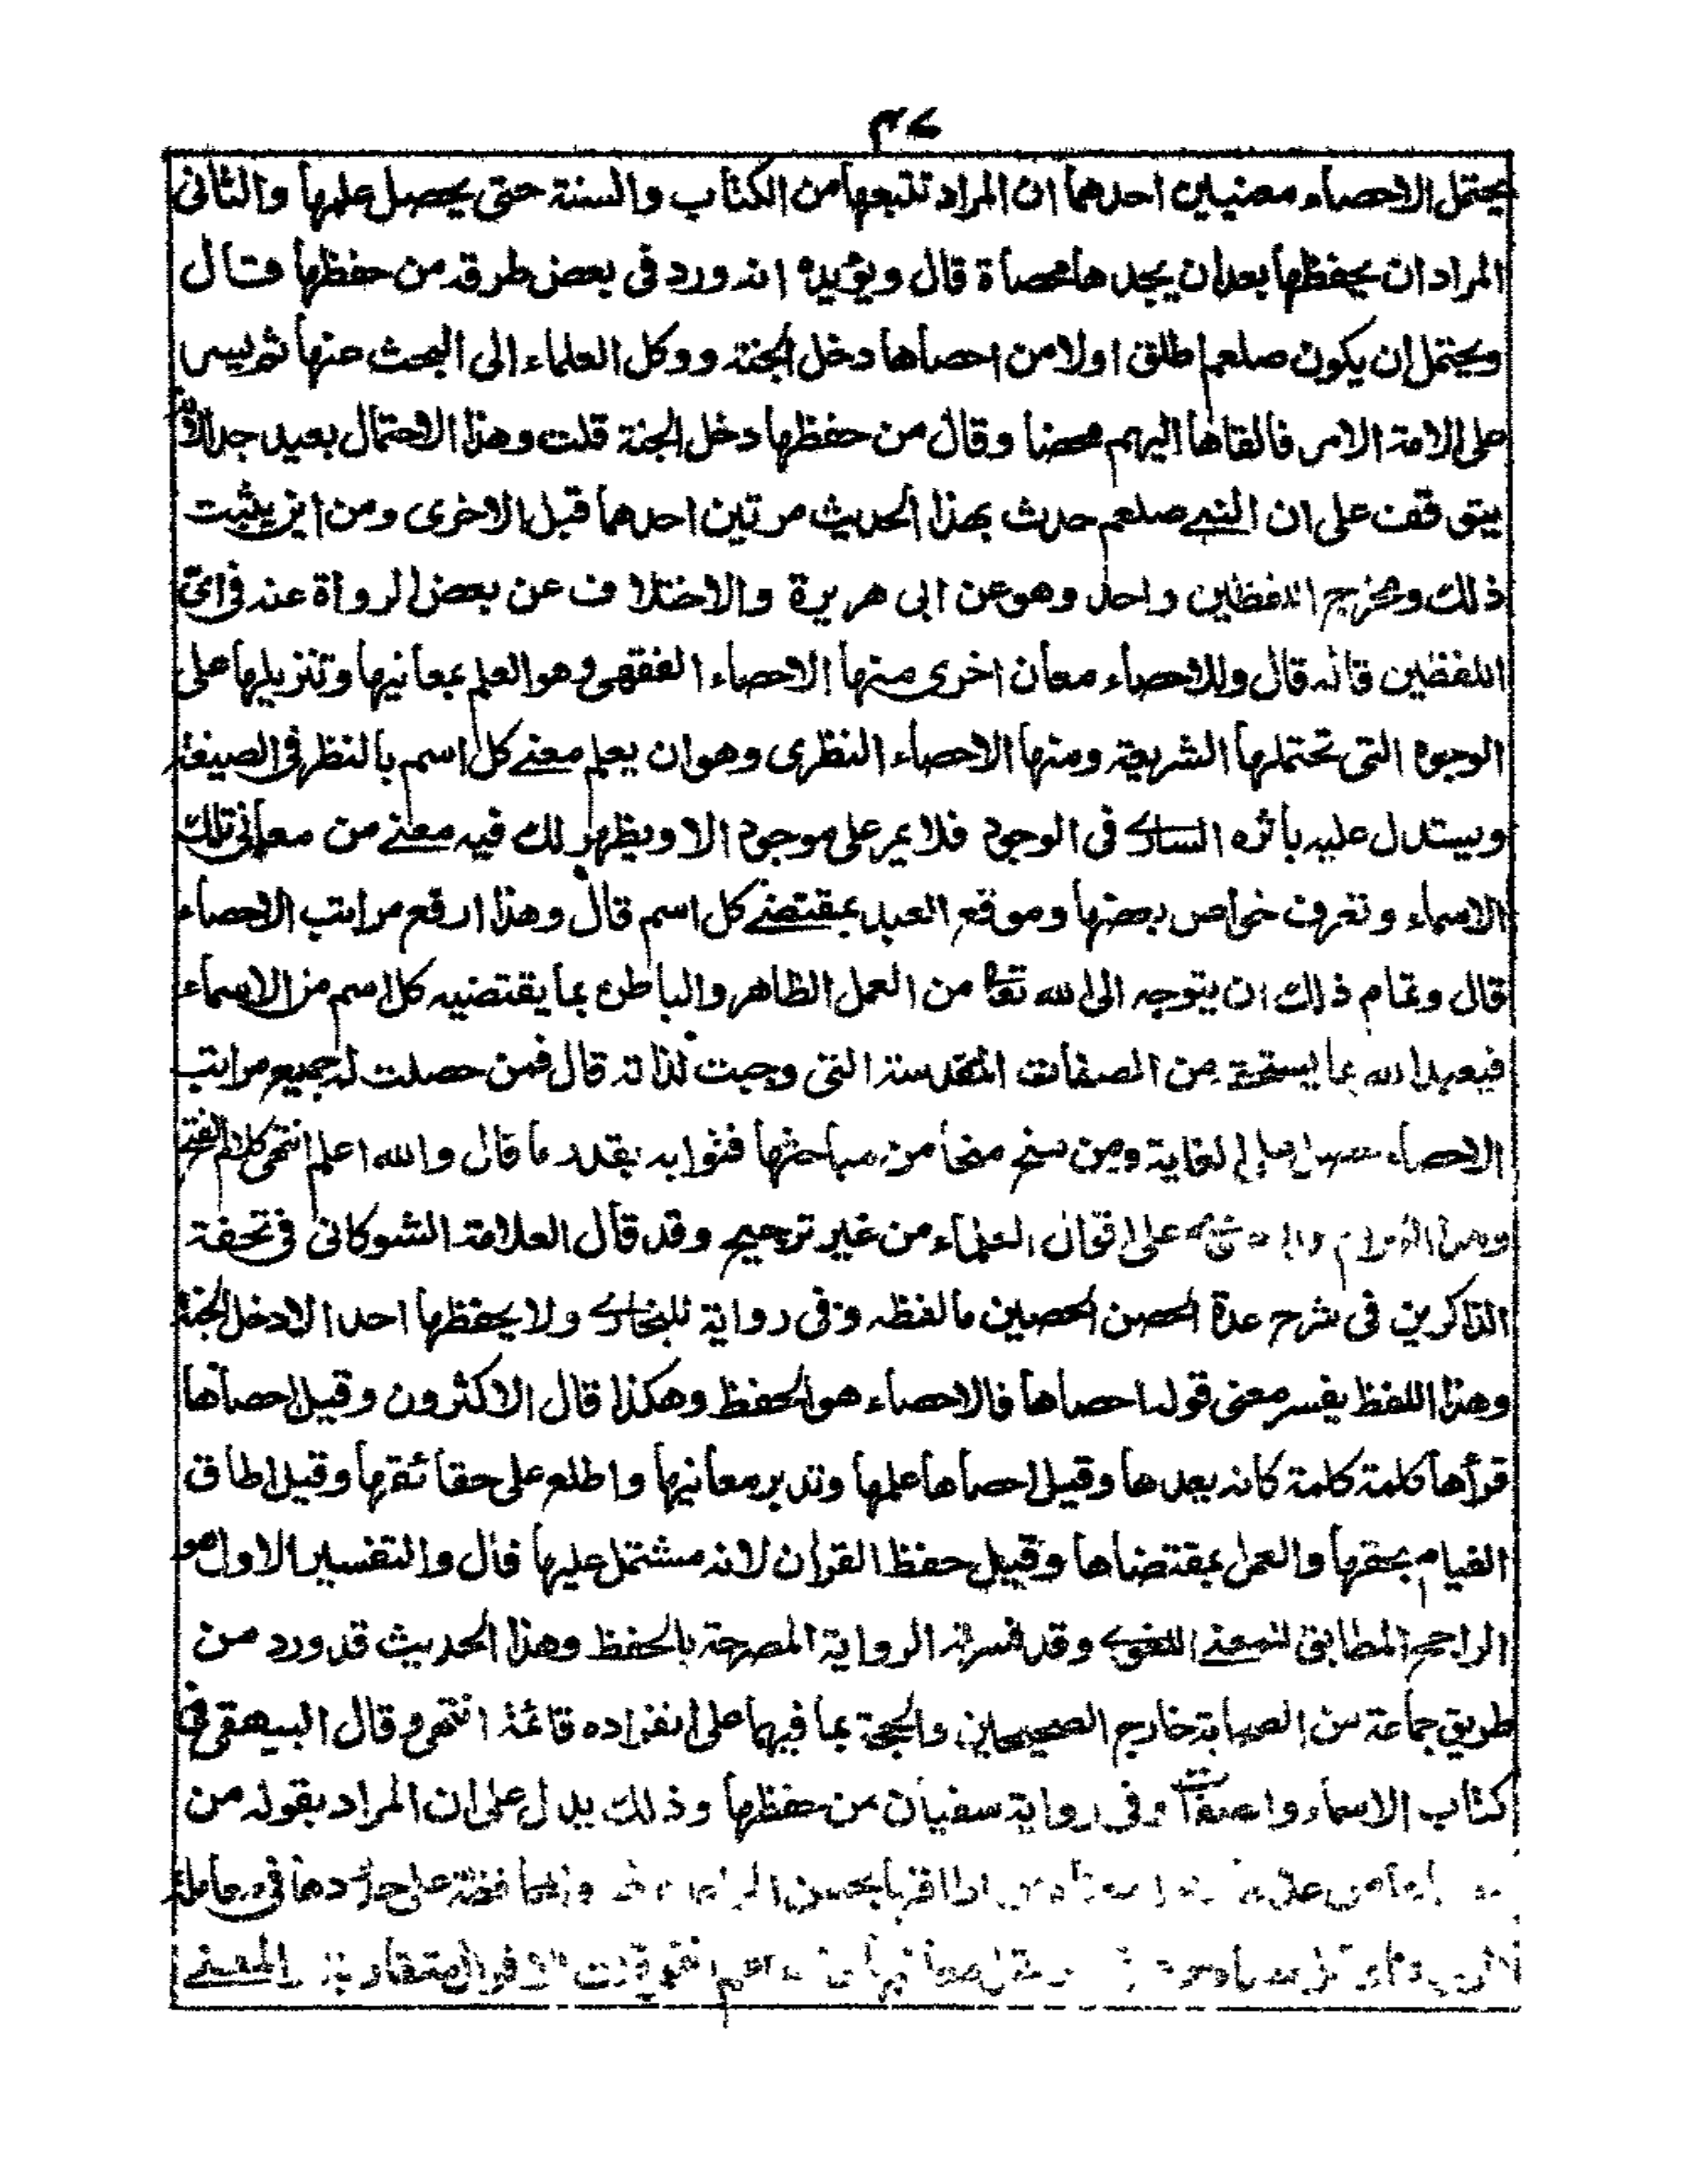 ٤٧
يحتمل الاحصاء معنيين احدهما ان المراد تتبعها من الكتاب والسنة حتى يحصل علمها والثانى
المراد ان يحفظها بعد ان يجدها محصاة قال ويؤيده انه ورد فى بعض طرقه من حفظها قال
ويحتمل ان يكون صلعم اطلق اولا من احصاها دخل الجنة ووكل العلماء الى البحث عنها ثم يسر
على الامة الامر فالقاها اليهم محضا وقال من حفظها دخل الجنة قلت وهذا الاحتمال بعيد جدا لانه
يتوقف على ان النبى صلعم حدث بهذا الحديث مرتين احدهما قبل الاخرى ومن اين يثبت
ذلك ومخرج اللفظين واحد وهو عن ابى هريرة والاختلاف عن بعض الرواة عنه فى اى
اللفظين قاله قال وللاحصاء معان اخرى منها الاحصاء الفقهى وهو العلم بمعانيها وتنزيلها على
الوجوه التى تحتملها الشريعة ومنها الاحصاء النظرى وهو ان يعلم معنى كل اسم بالنظر فى الصيغة
ويستدل عليه باثره السارى فى الوجود فلا يمر على موجود الا ويظهر لك فيه معنى من معانى تلك
الاسماء وتعرف خواص بعضها وموقع العبد بمقتضى كل اسم قال وهذا ارفع مراتب الاحصاء
قال وتمام ذلك ان يتوجه الى الله تعا من العمل الظاهر والباطن بما يقتضيه كل اسم من الاسماء
فيعبد الله بما يستحقه من الصفات المقدسة التى وجبت لذاته قال فمن حصلت له جميع مراتب
الاحصاء حصل على الغاية ومن سنح منحا من مباحثها فثوابه بقدر ما قال والله اعلم انتهى كلام الفتح
وهذا على اقوال العلماء من غير ترجيح وقد قال العلامة الشوكانى فى تحفة
الذاكرين فى شرح عدة الحصن الحصين ما لفظه وفى رواية للبخارى ولا يحفظها احد الا دخل الجنة
وهذا اللفظ يفسر معنى قوله احصاها فالاحصاء هو الحفظ وهكذا قال الاكثرون وقيل احصاها
قرأها كلمة كلمة كانه يعدها وقيل احصاها علمها وتدبر معانيها واطلع على حقائقها وقيل اطاق
القيام بحقها والعمل بمقتضاها وقيل حفظ القران لانه مشتمل عليها قال والتفسير الاول هو
الراجح المطابق للمعنى اللغوى وقد فسرته الرواية المصرحة بالحفظ وهذا الحديث قد ورد من
طريق جماعة من الصحابة خارج الصحيحين والحجة بما فيهما على انفراده قائمة انتهى وقال البيهقى فى
كتاب الاسماء والصفات وفى رواية سفيان من حفظها وذلك يدل على ان المراد بقوله من
اطاقها بحسن والمحافظة على حدودها فى معاملة
متقاربة المعنى